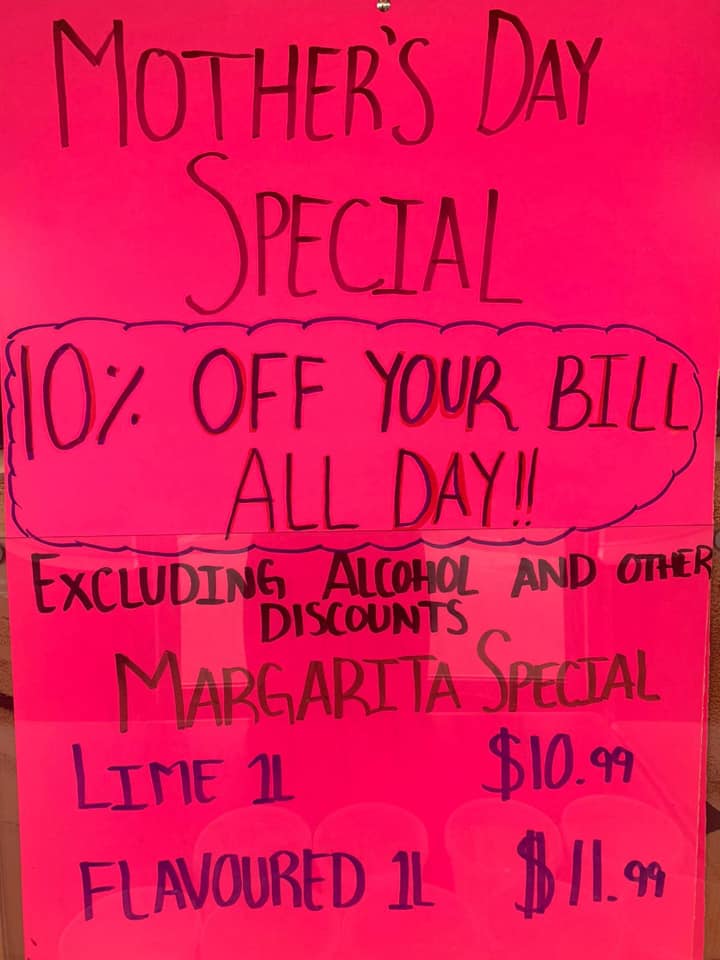 MOTHER'S DAY
SPECIAL
10% OFF YOUR BILL
ALL DAY!!
EXCLUDING ALCOHOL AND OTHER
DISCOUNTS
MARGARITA SPECIAL
LIME 1L $10.99
FLAVOURED 1L $11.99